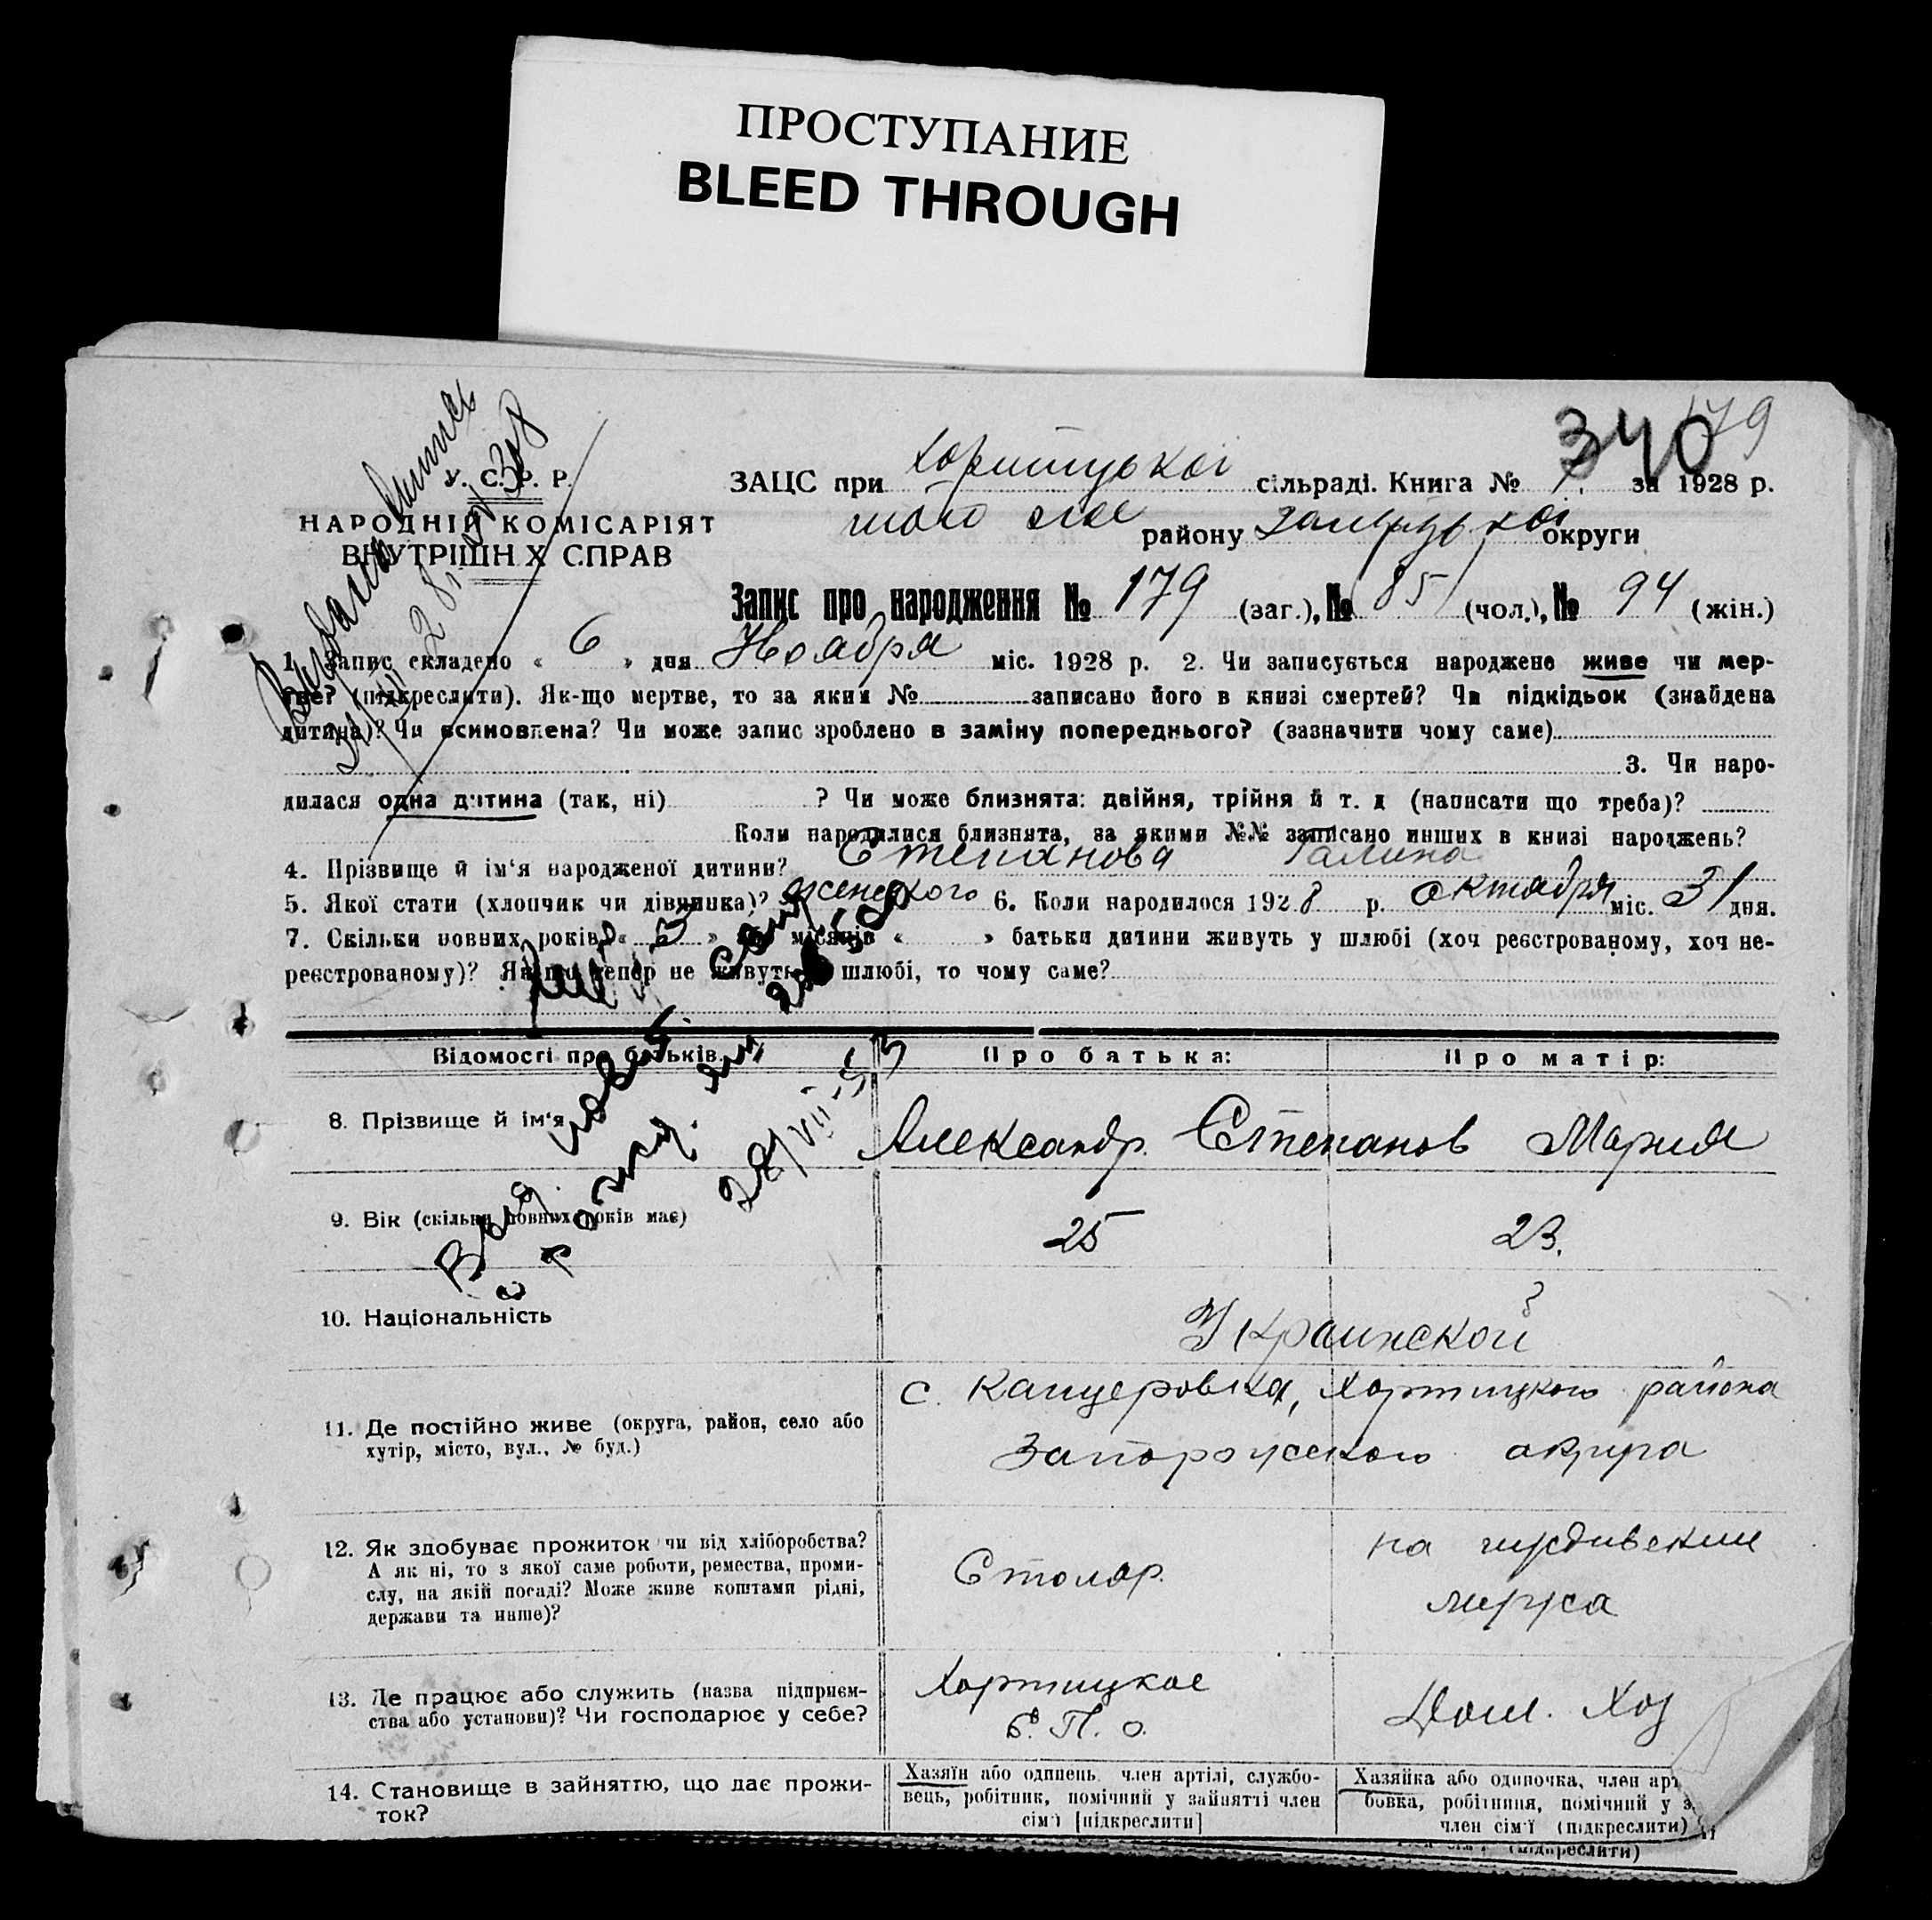 ПРОСТУПАНИЕ
BLEED THROUGH
340 179
У. С. Р. Р.
НАРОДНІЙ КОМІСАРІЯТ
ВНУТРІШНІХ СПРАВ
ЗАЦС при Хортицької сільраді. Книга № за 1928 р.
того же району округи
Запис про народження № 179 (заг.), № 85 (чол.), № 94 (жін.)
1. Запис складено « 6 » дня Ноября міс. 1928 р. 2. Чи записується народжене живе чи мер-
тве? (підкреслити). Як-що мертве, то за яким № записано його в книзі смертей? Чи підкідьок (знайдена
дитина)? Чи всиновлена? Чи може запис зроблено в заміну попереднього? (зазначити чому саме)
3. Чи наро-
дилася одна дитина (так, ні) ? Чи може близнята: двійня, трійня й т. д (написати що треба)?
Коли народилися близнята, за якими №№ записано инших в книзі народжень?
4. Прізвище й ім‘я народженої дитини? Степанова Галина
5. Якої стати (хлопчик чи дівчинка)? женского 6. Коли народилося 1928 р. октября міс. 31 дня.
7. Скільки повних років « 5 » або місяців « » батьки дитини живуть у шлюбі (хоч реєстрованому, хоч не-
реєстрованому)? Як-що тепер не живуть у шлюбі, то чому саме?
Відомості про батьків
Про батька:
Про матір:
28/VII-53
8. Прізвище й ім‘я
Александр Степанов Мария
9. Вік (скільки повних років має)
25
23.
10. Національність
Украинской
11. Де постійно живе (округа, район, село або
хутір, місто, вул., № буд.)
с. Канцеровка, Хортицкого района
Запорожского округа
12. Як здобуває прожиток чи від хліборобства?
А як ні, то з якої саме роботи, ремества, проми-
слу, на якій посаді? Може живе коштами рідні,
держави та инше)?
Столяр.
на иждивении
мужа
13. Де працює або служить (назва підприєм-
ства або установи)? Чи господарює у себе?
Хортицкое
П. о.
Дом. Хоз
14. Становище в зайняттю, що дає прожи-
ток?
Хазяїн або одинець, член артілі, службо-
вець, робітник, помічний у зайнятті член
сім‘ї [підкреслити]
Хазяйка або одиночка, член арт
бовка, робітниця, помічний у з
член сім‘ї (підкреслити)
(підкреслити)